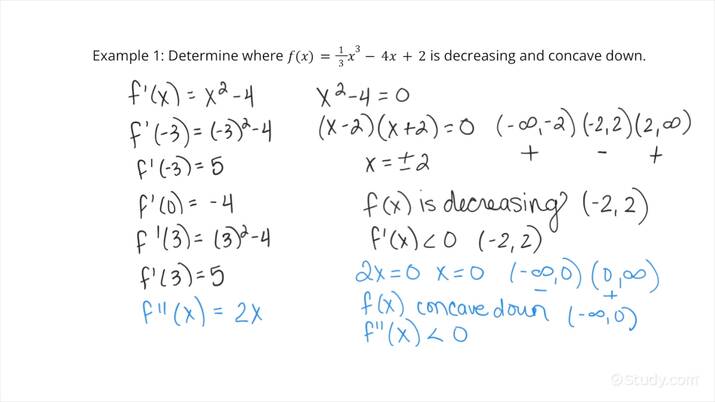 Example 1: Determine where f(x) = 1/3 x³ − 4x + 2 is decreasing and concave down.
f'(x) = x² - 4
f'(-3) = (-3)² - 4
f'(-3) = 5
f'(0) = -4
f'(3) = (3)² - 4
f'(3) = 5
f''(x) = 2x
x² - 4 = 0
(x-2)(x+2) = 0 (-∞,-2) (-2,2) (2,∞)
+ - +
x = ±2
f(x) is decreasing? (-2,2)
f'(x) < 0 (-2,2)
2x=0 x=0 (-∞,0) (0,∞)
- +
f(x) concave down (-∞,0)
f''(x) < 0
©Study.com